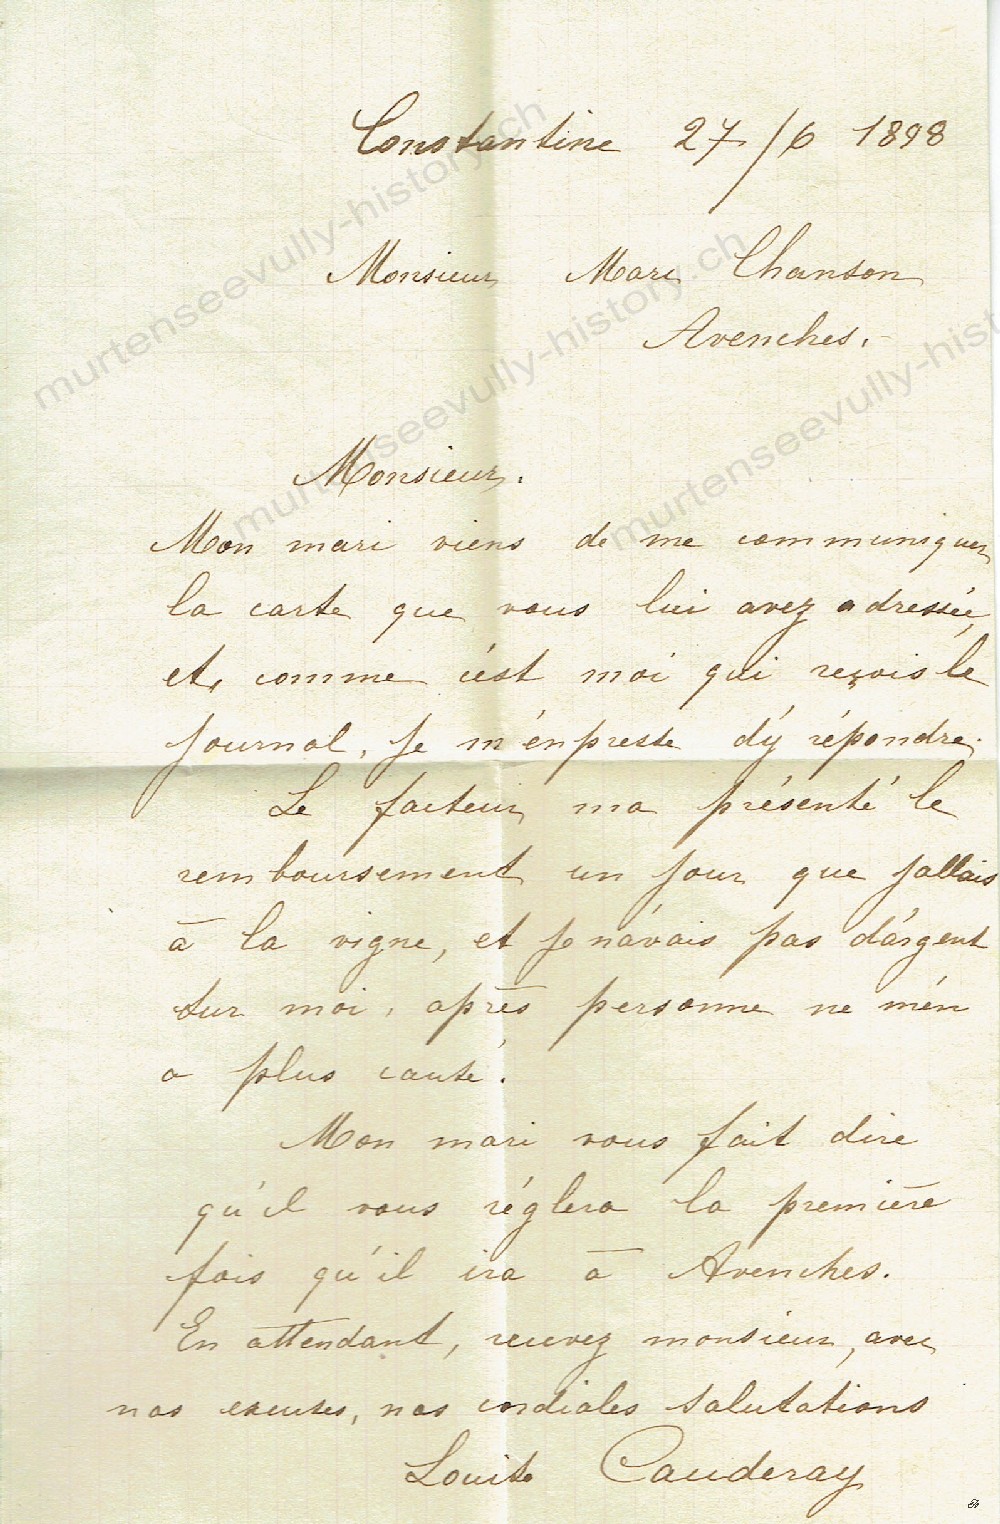 Constantine 27/6 1898
Monsieur Marc Chanson
Avenches.
Monsieur.
Mon mari viens de me communiquer
la carte que vous lui avez adressée,
et, comme c'est moi qui reçois le
journal, je m'enpresse d'y répondre.
Le facteur ma présenté le
remboursement un jour que jallais
à la vigne, et je n'avais pas d'argent
sur moi, après personne ne m'én
a plus causé.
Mon mari vous fait dire
qu'il vous réglera la première
fois qu'il ira à Avenches.
En attendant, recevez monsieur, avec
nos excuses, nos cordiales salutations
Louise Cauderay
murtenseevully-history.ch
murtenseevully-history.ch
murtenseevully-hist